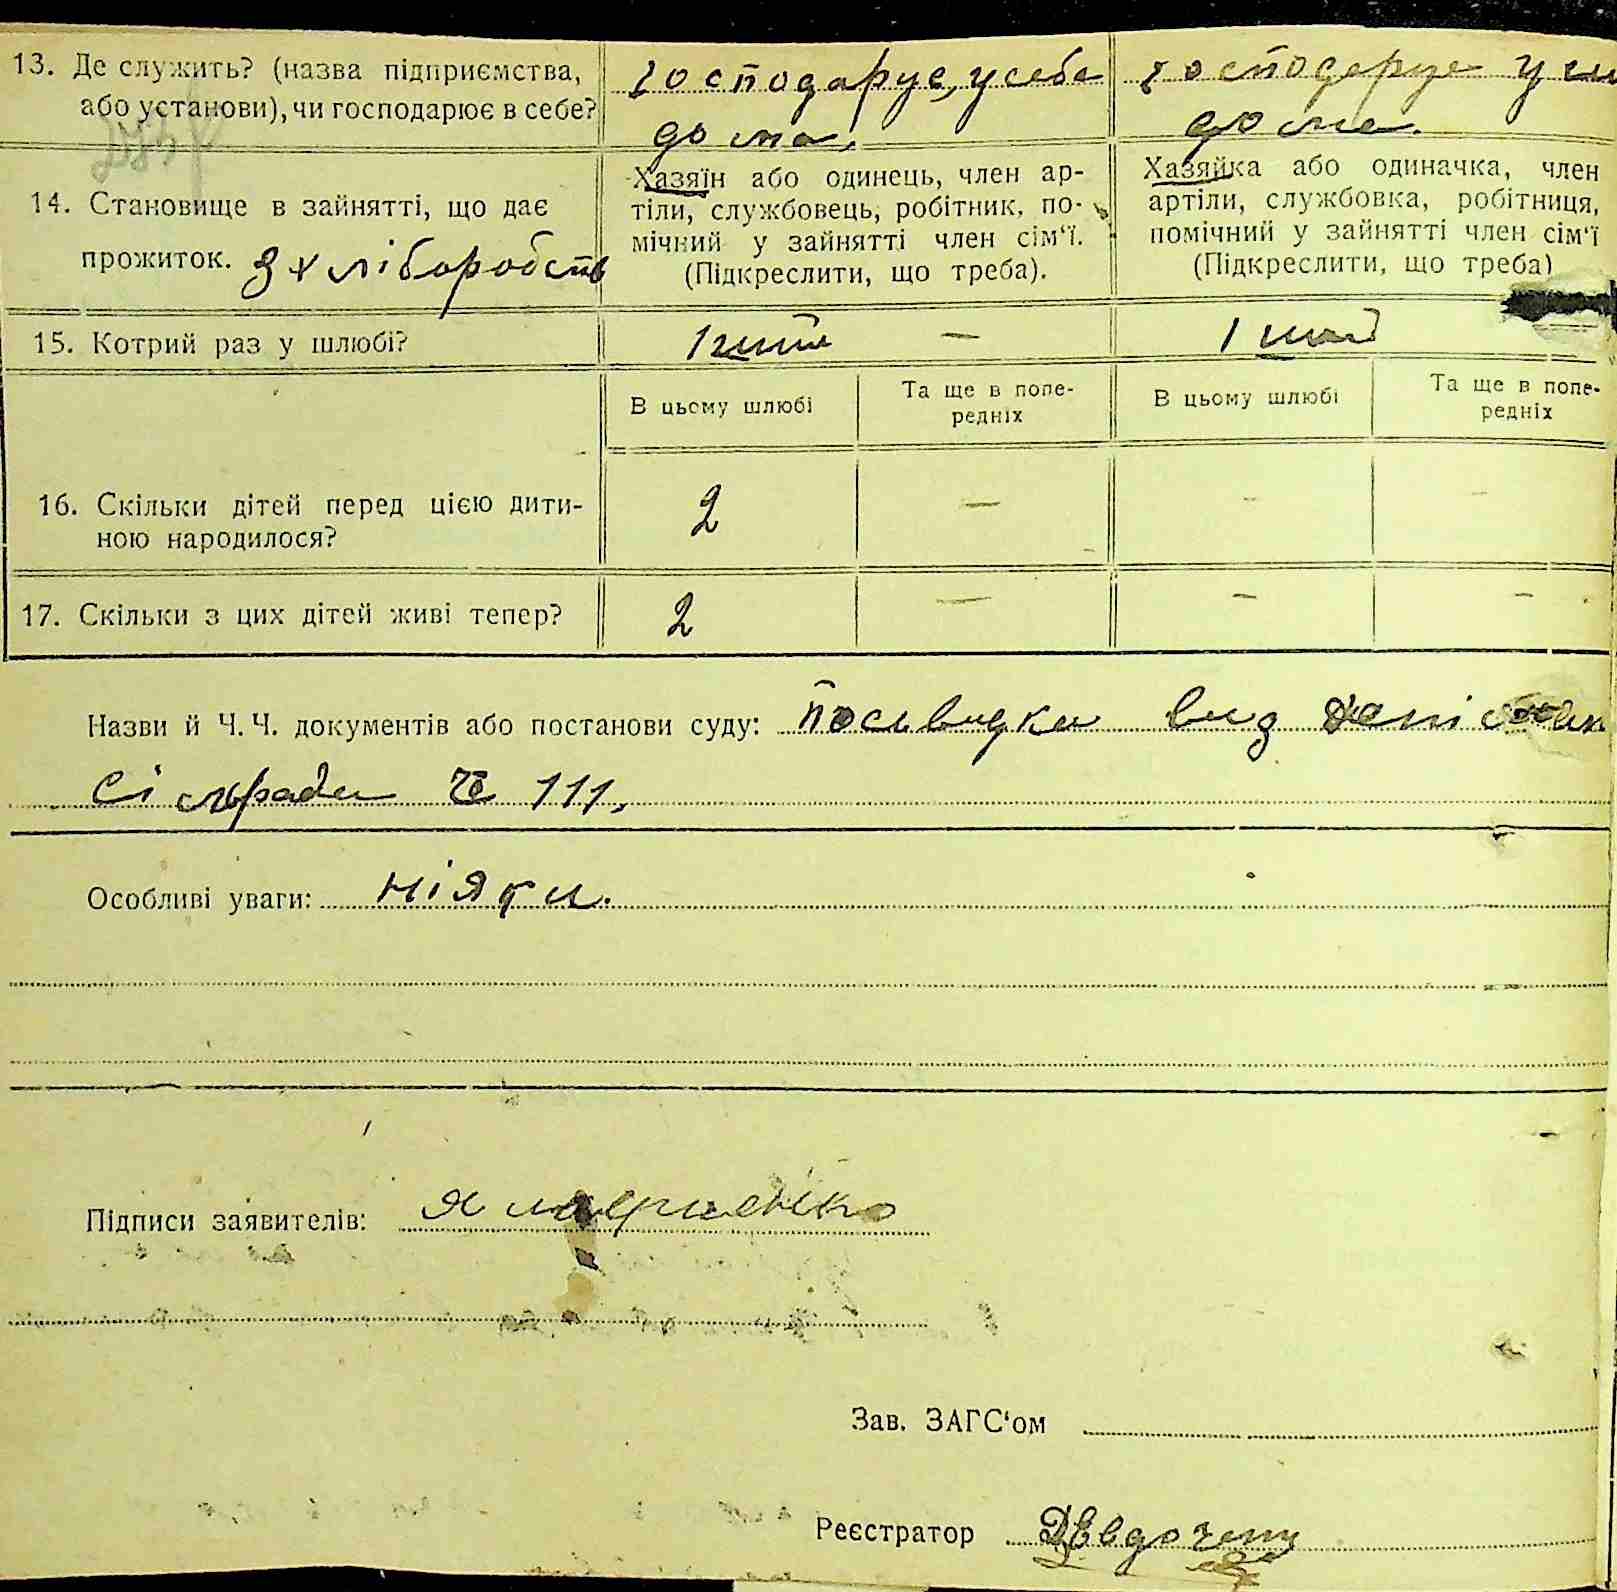 13. Де служить? (назва підприємства, господарує, у себе господарує у
або установи), чи господарює в себе? дома. дома.
14. Становище в зайнятті, що дає
прожиток. З хліборобств
Хазяїн або одинець, член ар-
тіли, службовець, робітник, по-
мічний у зайнятті член сім'ї.
(Підкреслити, що треба).
Хазяйка або одиначка, член
артіли, службовка, робітниця,
помічний у зайнятті член сім'ї
(Підкреслити, що треба)
15. Котрий раз у шлюбі? 1 — 1
В цьому шлюбі Та ще в попе-
редніх В цьому шлюбі Та ще в попе-
редніх
16. Скільки дітей перед цією дити- 2 — - -
ною народилося?
17. Скільки з цих дітей живі тепер? 2 — - -
Назви й Ч. Ч. документів або постанови суду: посьвидка вид
сільради Ч 111.
Особливі уваги: ніяки.
Підписи заявителів: Я
Зав. ЗАГС'ом
Реєстратор